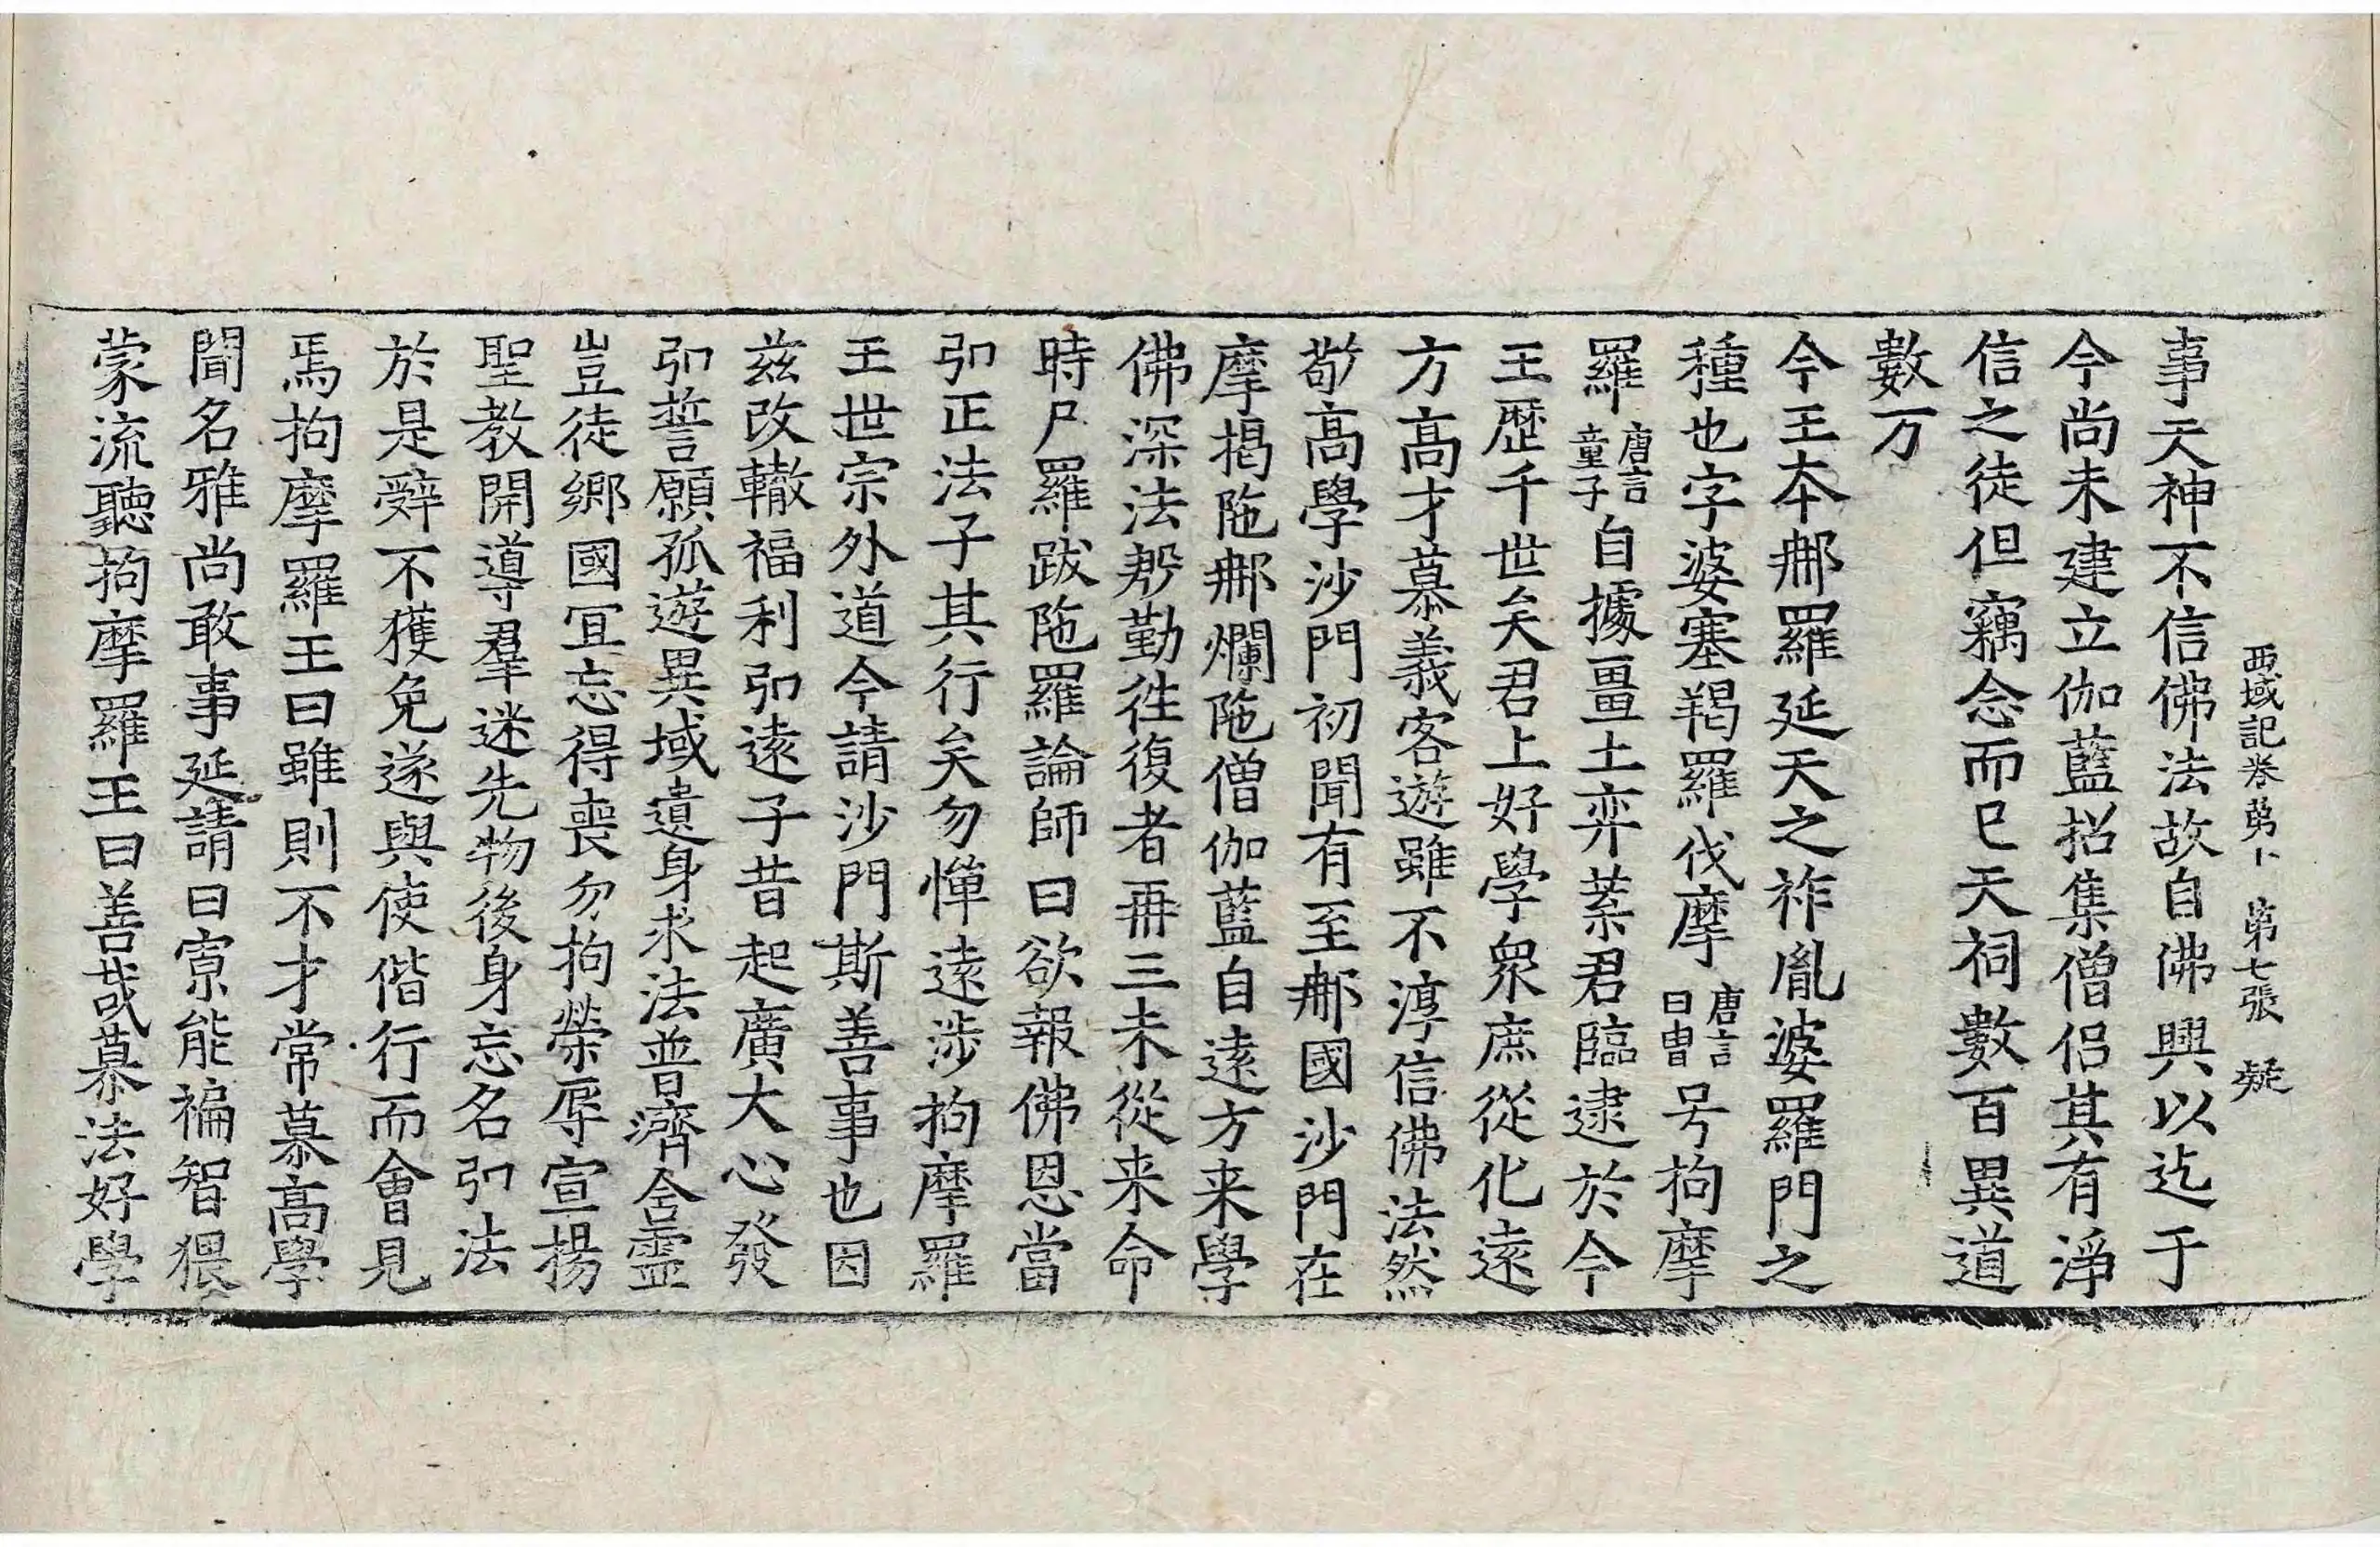 西域記卷第十 第七張 疑
事天神不信佛法故自佛興以迄于
今尚未建立伽藍招集僧侶其有淨
信之徒但竊念而已天祠數百異道
數万
今王本郍羅延天之祚胤婆羅門之
種也字婆塞羯羅伐摩唐言日胄号拘摩
羅唐言童子自據畺土弈葉君臨逮於今
王歷千世矣君上好學衆庶從化遠
方髙才慕義客遊雖不淳信佛法然
敬髙學沙門初聞有至郍國沙門在
摩揭陁郍爛陁僧伽藍自遠方来學
佛深法慇勤往復者再三未從来命
時尸羅跋陁羅論師曰欲報佛恩當
弘正法子其行矣勿憚遠涉拘摩羅
王世宗外道今請沙門斯善事也因
茲改轍福利弘遠子昔起廣大心發
弘誓願孤遊異域遺身求法普濟含靈
豈徒鄉國冝忘得喪勿拘榮辱宣揚
聖教開導羣迷先物後身忘名弘法
於是辤不獲免遂與使偕行而會見
焉拘摩羅王曰雖則不才常慕髙學
聞名雅尚敢事延請曰寡能褊智猥
蒙流聽拘摩羅王曰善哉慕法好學